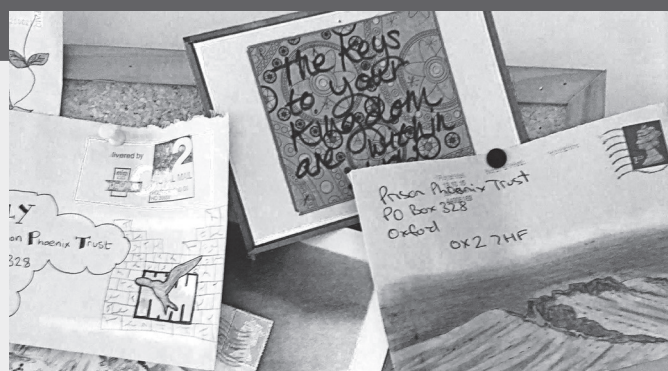 the keys
to your
kingdom
are within
Prison Phoenix Trust
PO Box 328
Oxford
OX2 7HF
livered by
2
LY
on Phoenix Trust
328